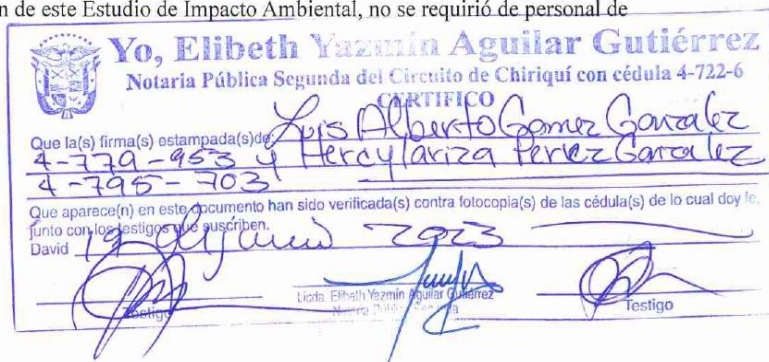 n de este Estudio de Impacto Ambiental, no se requirió de personal de
Yo, Elibeth Yazmín Aguilar Gutiérrez
Notaria Pública Segunda del Circuito de Chiriquí con cédula 4-722-6
CERTIFICO
Que la(s) firma(s) estampada(s)de: Luis Alberto Gomez Gonzalez
4-779-953 y Hercylariza Perez Gonzalez
4-795-703
Que aparece(n) en este documento han sido verificada(s) contra fotocopia(s) de las cédula(s) de lo cual doy fe,
junto con los testigos que suscriben.
David 19 de junio 2023
Testigo
Licda. Elibeth Yazmín Aguilar Gutiérrez
Testigo
Notaria Pública Segunda